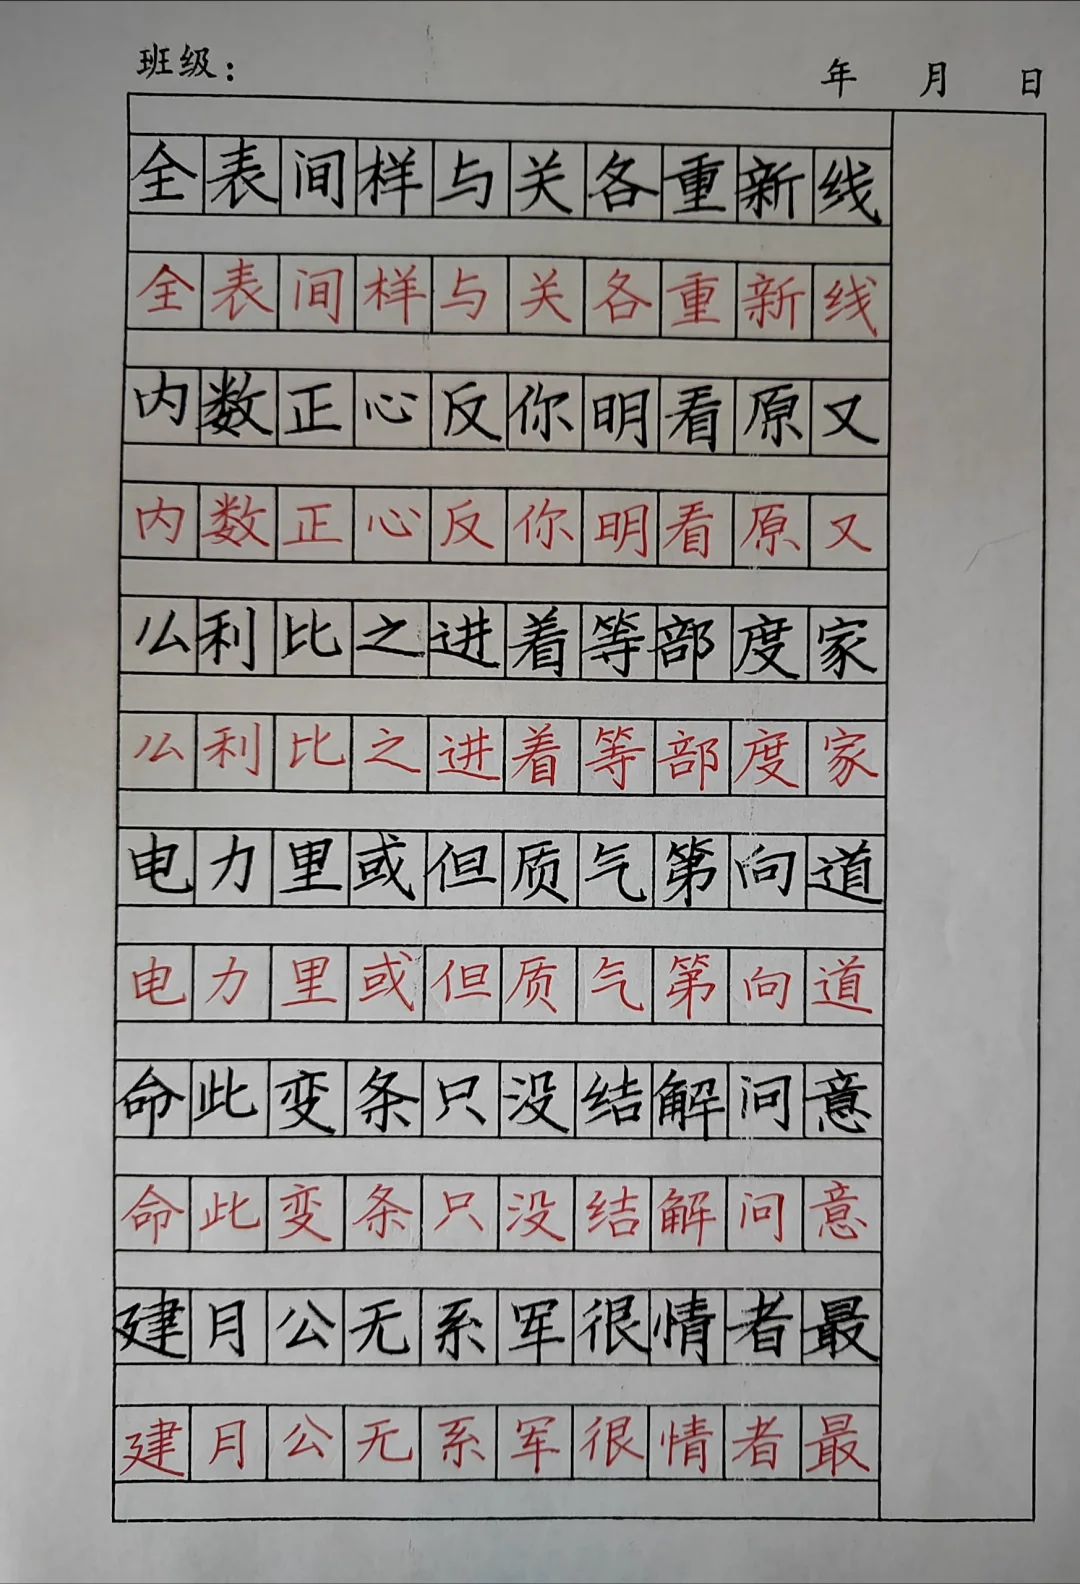 班级： 年 月 日
全表间样与关各重新线
全表间样与关各重新线
内数正心反你明看原又
内数正心反你明看原又
么利比之进着等部度家
么利比之进着等部度家
电力里或但质气第向道
电力里或但质气第向道
命此变条只没结解问意
命此变条只没结解问意
建月公无系军很情者最
建月公无系军很情者最